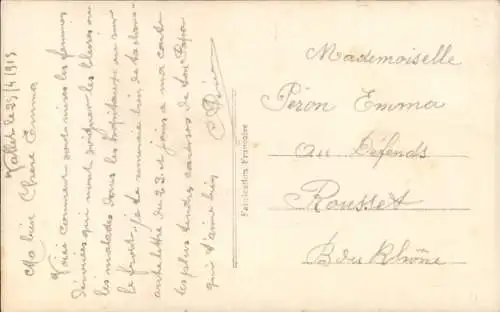 le 25/4 1915
Ma bien Chère Emma
Voici comment sont mises les femmes
dévouées qui vont soigner les blessés ou
les malades dans les hopitaux ou sur
le front, je te remercie bien de ta bonne
lettre du 23. et joins a ma carte
les plus tendres caresses de ton Papa
qui t'aime bien
Fabrication Française
Mademoiselle
Péron Emma
au Défends
Rousset
B du Rhône